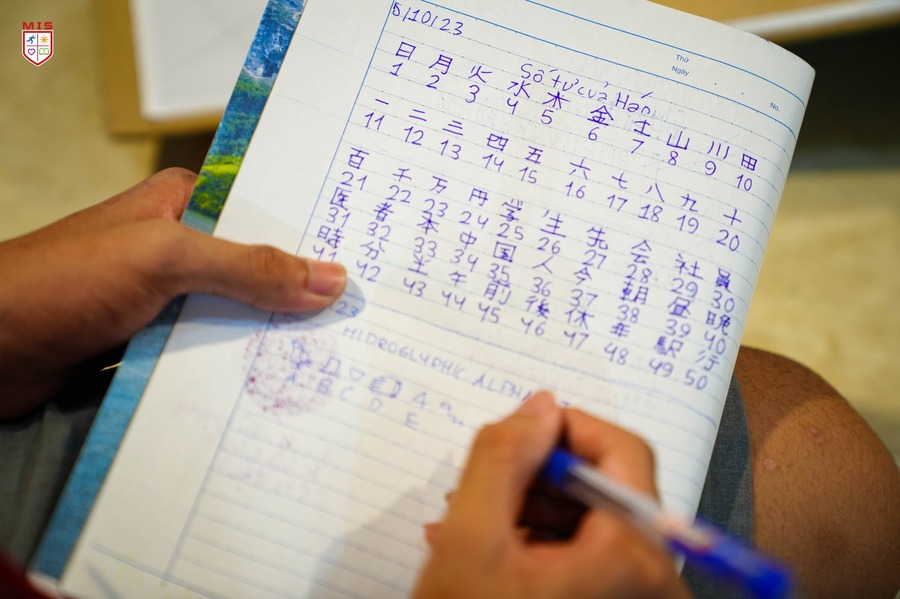 MIS
Thứ
Ngày
No.
5/10/23
Số từ của Hán
日 月 火 水 木 金 土 山 川 田
1 2 3 4 5 6 7 8 9 10
一 二 三 四 五 六 七 八 九 十
11 12 13 14 15 16 17 18 19 20
百 千 万 円 学 生 先 会 社 員
21 22 23 24 25 26 27 28 29 30
医 者 本 中 国 人 今 朝 昼 晩
31 32 33 34 35 36 37 38 39 40
時 分 午 前 後 休 年 駅 行
41 42 43 44 45 46 47 48 49 50
23
HIDROGLYPHK ALPHA
A B C D E